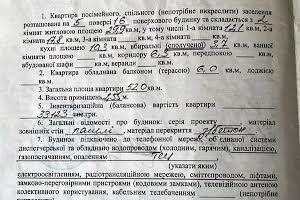 1. Квартира посімейного, спільного (непотрібне викреслити) заселення
розташована на 5 поверсі 16 поверхового будинку та складається з 2
кімнат житловою площею 29,9 кв.м, у тому числі 1-а кімната 12,1 кв. м,
2-а кімната 17,8 кв.м, 3-а кімната кв.м, 4-а кімната кв.м,
кухні площею 10,3 кв.м, вбиральні (сполученої) 3,7 кв.м, ванної
кімнати кв.м, коридору 6,3 кв.м, передпокою кв.м,
вбудованої шафи кв.м, веранди кв.м.
2. Квартира обладнана балконом (терасою) 6,0 кв.м, лоджією
кв.м.
3. Загальна площа квартири 52,0 кв.м.
4. Висота приміщень
5. Інвентаризаційна (балансова) вартість квартири
6. Загальні відомості про будинок: серія проекту матеріал
зовнішніх стін панелі, матеріал перекриття
7. Будинок підключено до телефонної мережі, об'єднаної системи
диспетчерської та обладнано водопроводом (холодним, гарячим), каналізацією,
газопостачанням, опаленням ТЕЦ
(указати яким)
електроосвітленням, радіотрансляційною мережею, сміттєпроводом, ліфтами,
замково-переговорними пристроями (кодовими замками), телевізійною антеною
колективного користування, кабельним телебаченням